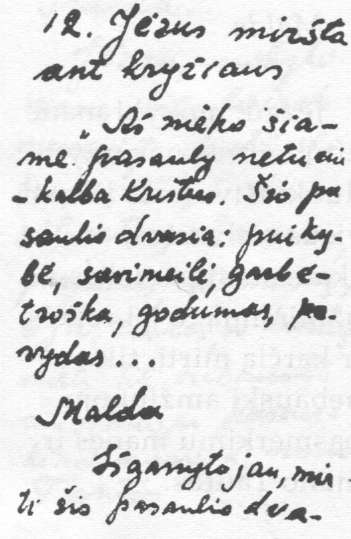 12. Jėzus miršta
ant kryžiaus
„Aš nieko šia-
me pasauly neturiu
- kalba Kristus. Šio pa
saulio dvasia: puiky-
bė, savimeilė, garbė-
troška, godumas, pa-
vydas...
Malda
Išganytojau, mir-
ti šio pasaulio dva-